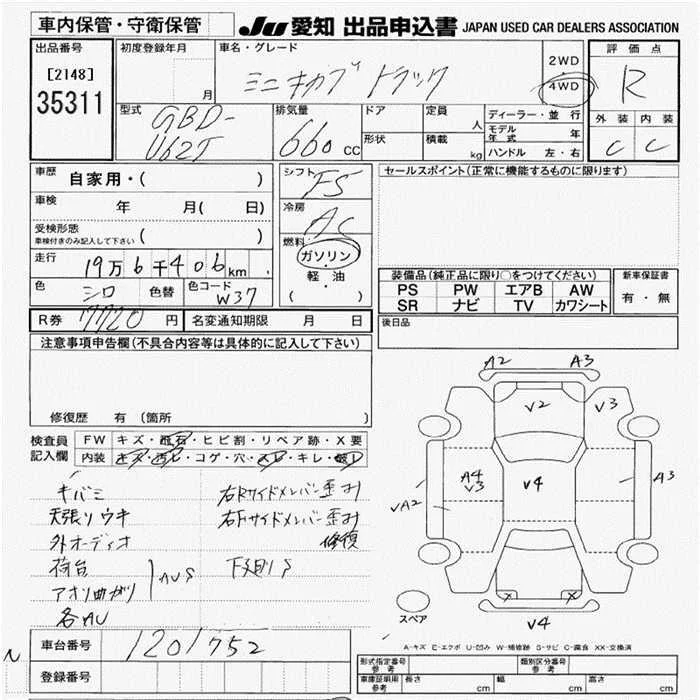 車内保管・守衛保管
JU 愛知 出品申込書 JAPAN USED CAR DEALERS ASSOCIATION
出品番号
[2148]
35311
初度登録年月
月
車名・グレード
ミニキャブ トラック
2WD
4WD
評価点
R
外装 内装
C C
型式
GBD-
U62T
排気量
660 CC
ドア
形状
定員
人
積載
kg
ディーラー・並行
モデル年式 年
ハンドル 左・右
車歴 自家用・( )
車検 年 月( 日)
受検形態
車検付きのみ記入して下さい ( )
走行 19万6千406km
色 シロ 色替 色コード W37
R券 7720円 名変通知期限 月 日
シフト F5
冷房 AC
燃料
ガソリン
・
軽・油
( )
セールスポイント(正常に機能するものに限ります)
装備品(純正品に限り○をつけてください)
PS PW エアB AW
SR ナビ TV カワシート
新車保証書
有・無
後日品
注意事項申告欄(不具合内容等は具体的に記入して下さい)
修復歴 有 (箇所 )
検査員記入欄
FW キズ・飛石・ヒビ割・リペア跡・X要
内装 キズ・汚レ・コゲ・穴・スレ・キレ・破レ
キバミ
天張りウキ
外オーディオ
荷台
アオリ曲がり
AUS
各AU
右Rサイドメンバー歪み
右Fサイドメンバー歪み
修復
下廻りS
A2 A3
V2 V3
A4
V3
V4
A3
VA2
X X
V4
スペア
A-キズ E-エクボ U-凹み W-補修跡 S-サビ C-腐食 XX-交換済
N
車台番号 1201752
登録番号
形式指定番号 参考
類別区分番号 参考
車庫証明用 参考
長さ cm
幅 cm
高さ cm